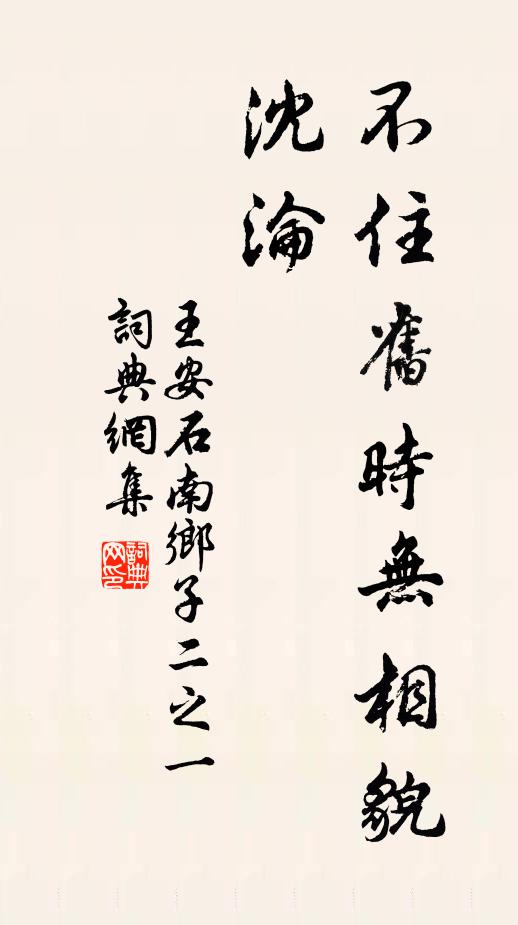 不住舊時無相貌
沈淪
王安石南鄉子二之一
詞典網集
詞典网印